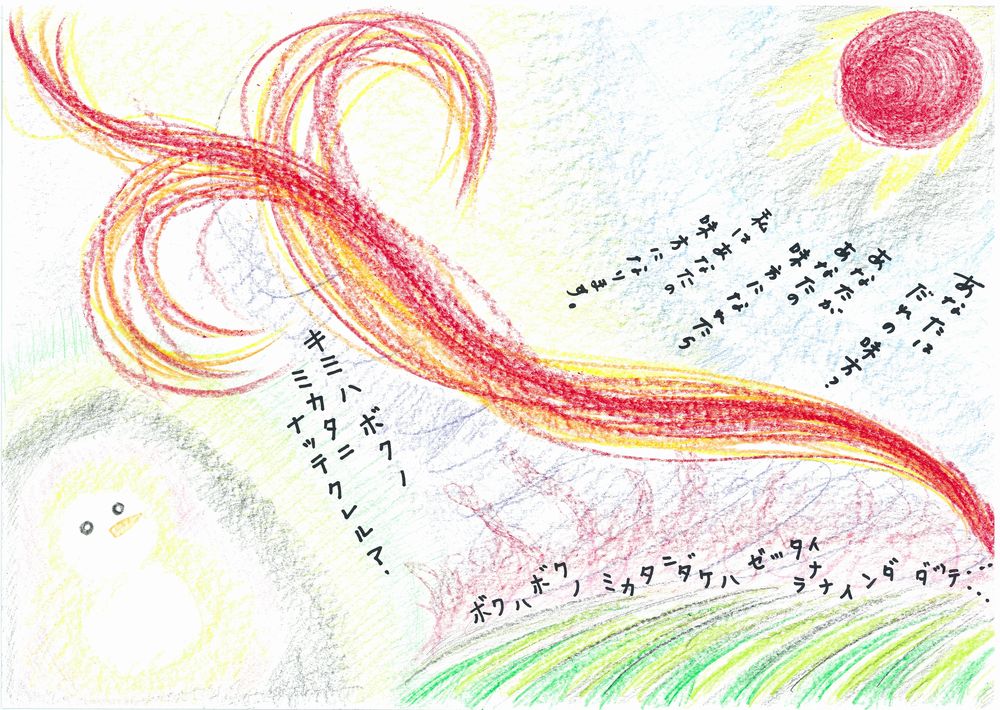 あなたは
だれの味方?
あなたが
あなたの
味方になれたら
私は
あなたの
味方になります。
キミハボクノ
ミカタニ
ナッテクレル?
ボクハボクノミカタニダケハゼッタイ
ナラナインダ ダッテ……